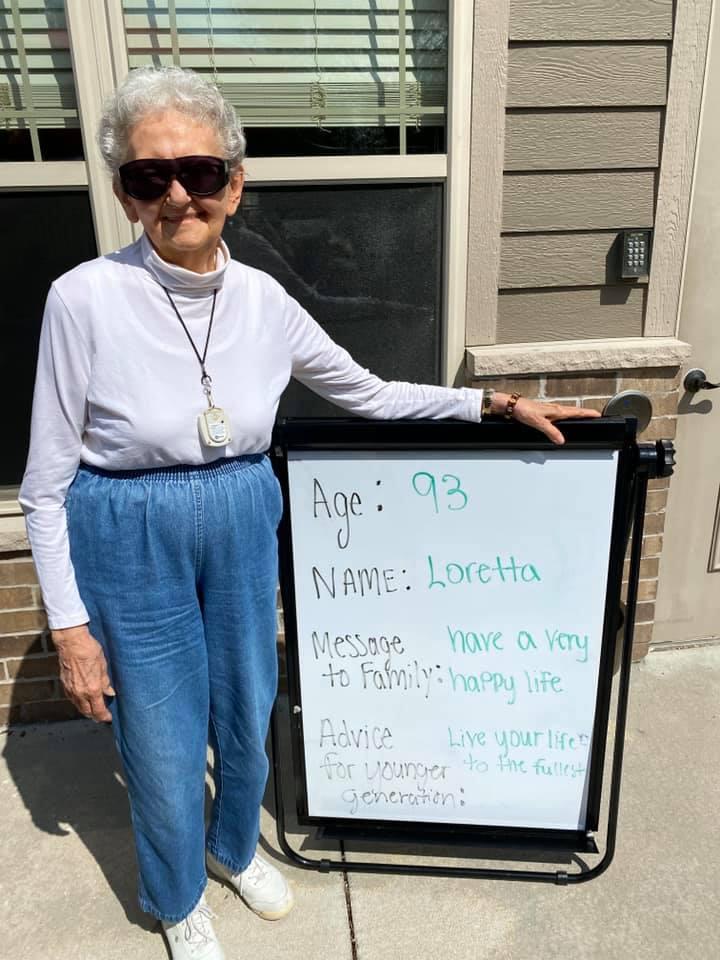 Age: 93
NAME: Loretta
Message have a very
to Family: happy life
Advice Live your life
for younger to the fullest
generation: